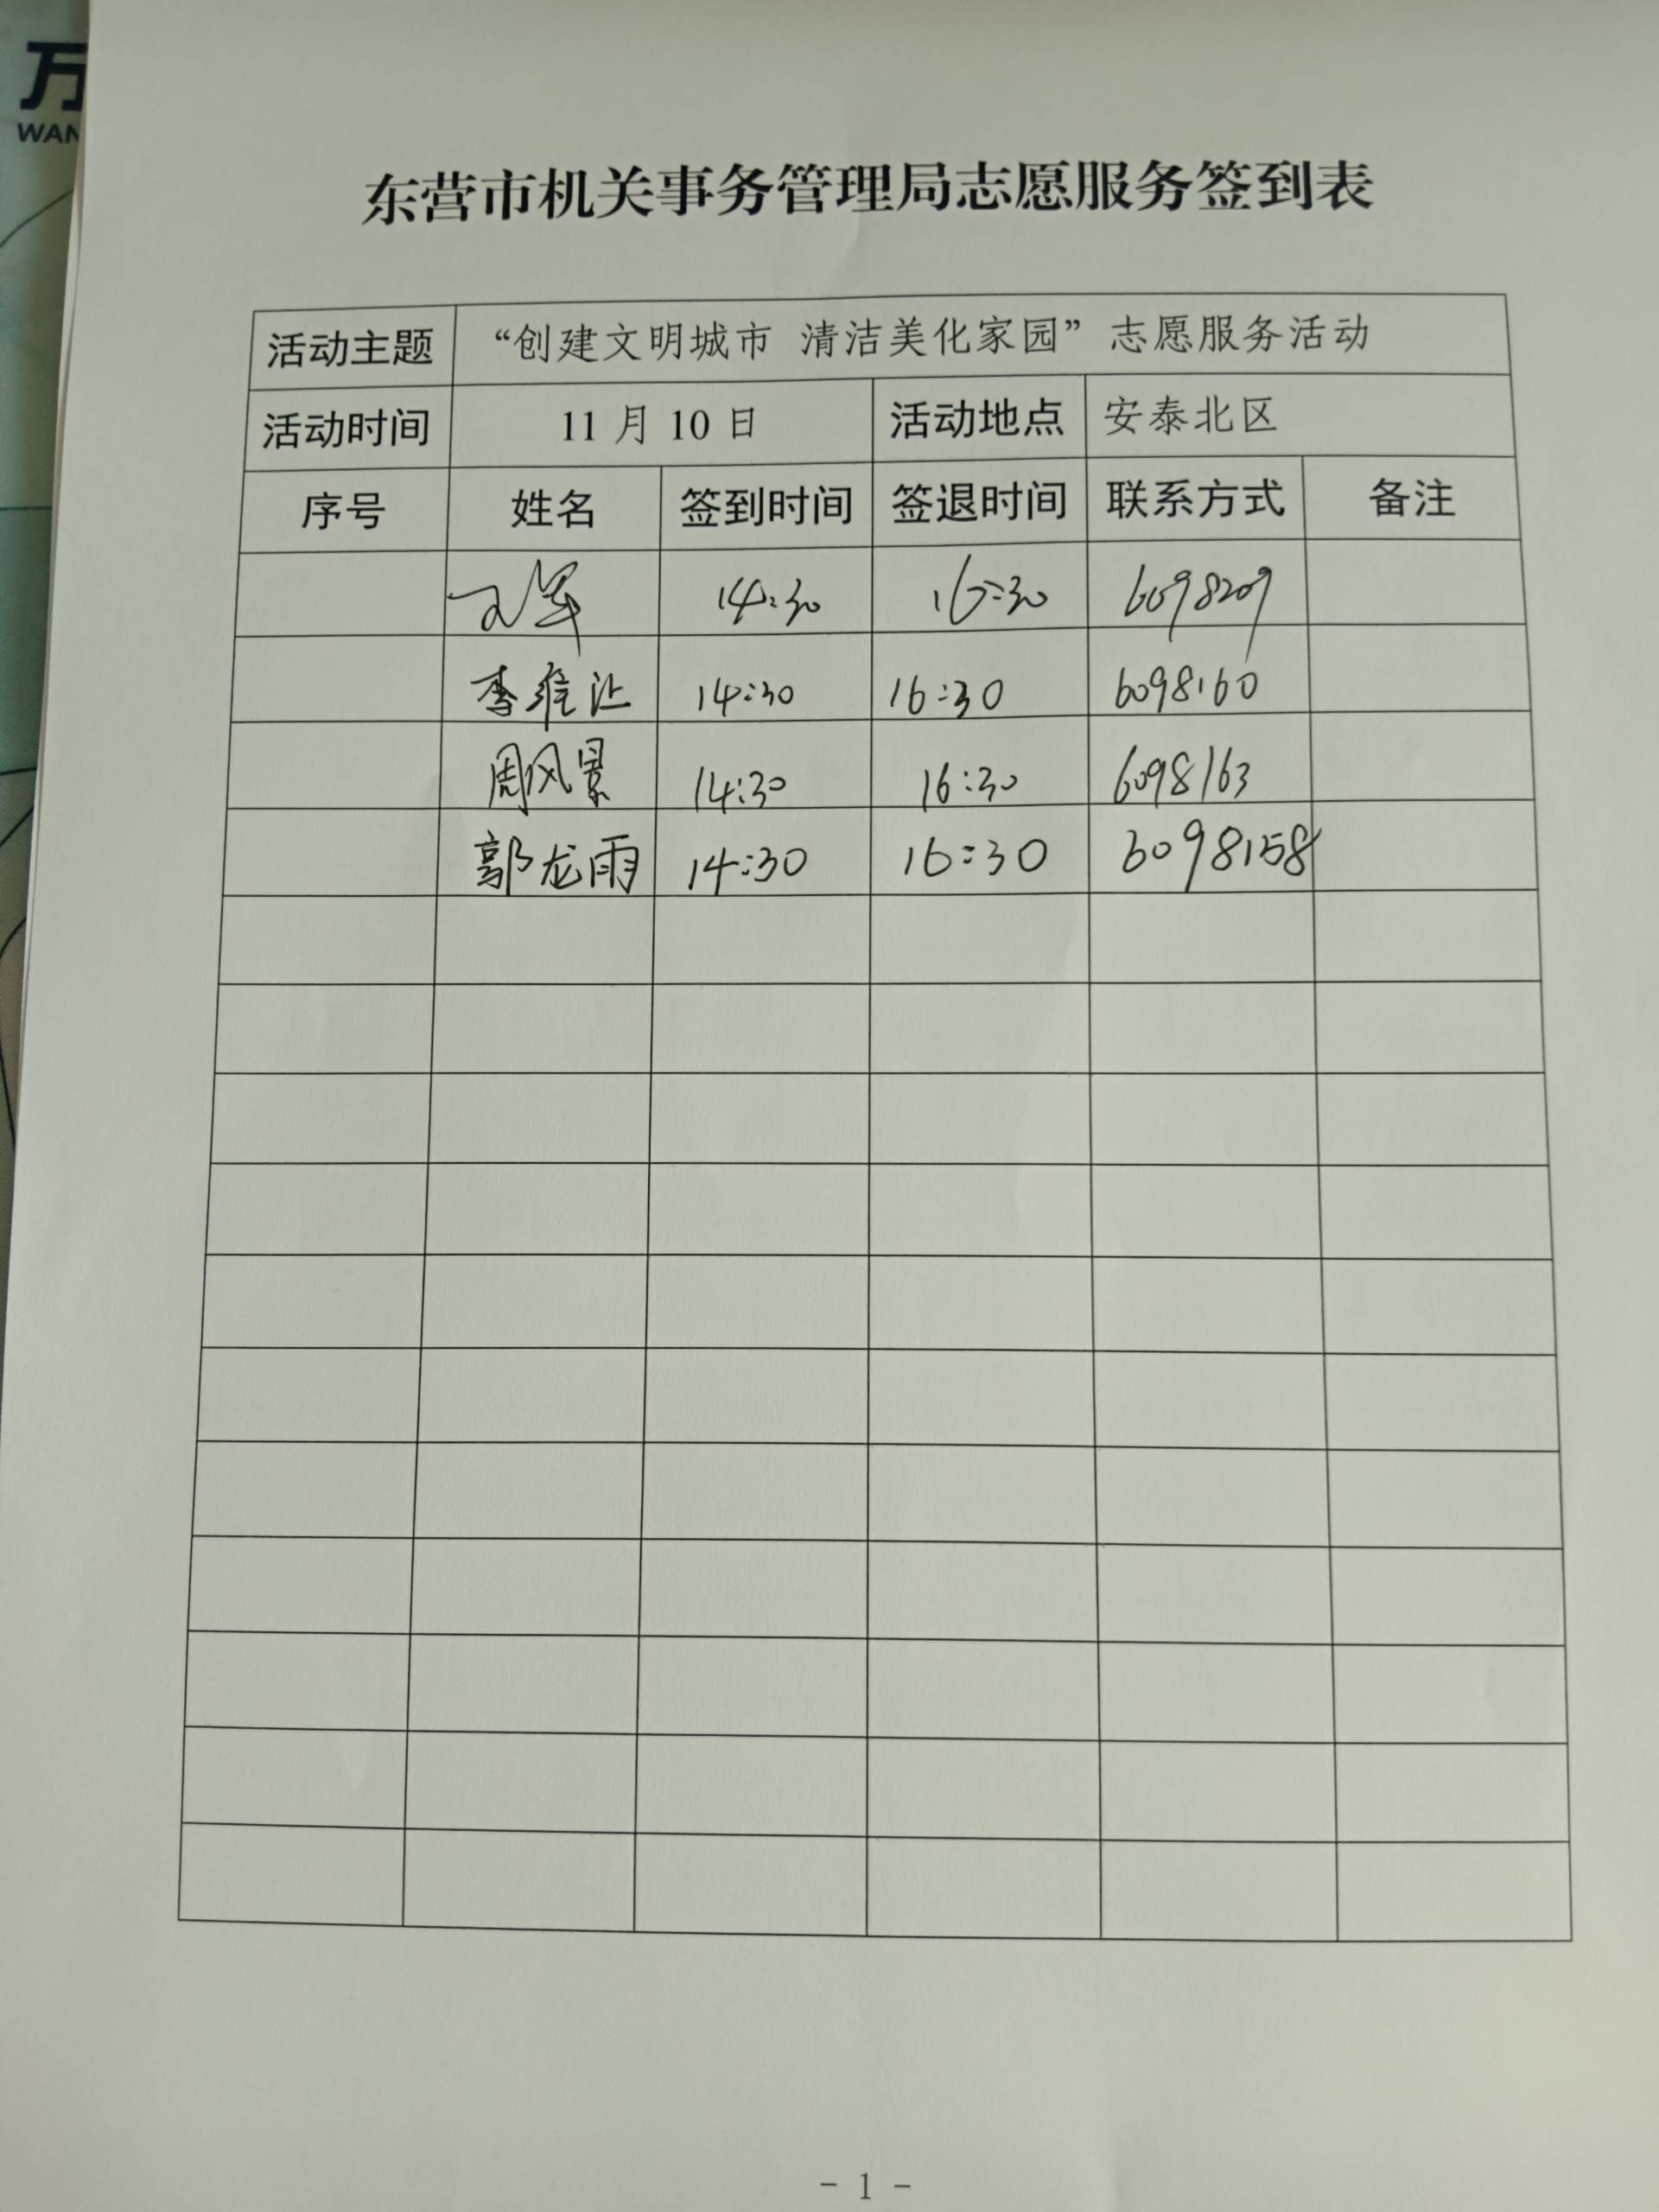 万
WAN
东营市机关事务管理局志愿服务签到表
活动主题 “创建文明城市 清洁美化家园”志愿服务活动
活动时间 11月10日 活动地点 安泰北区
序号 姓名 签到时间 签退时间 联系方式 备注
14:30 16:30 6098209
李维让 14:30 16:30 6098160
周风景 14:30 16:30 6098163
郭龙雨 14:30 16:30 6098158
- 1 -